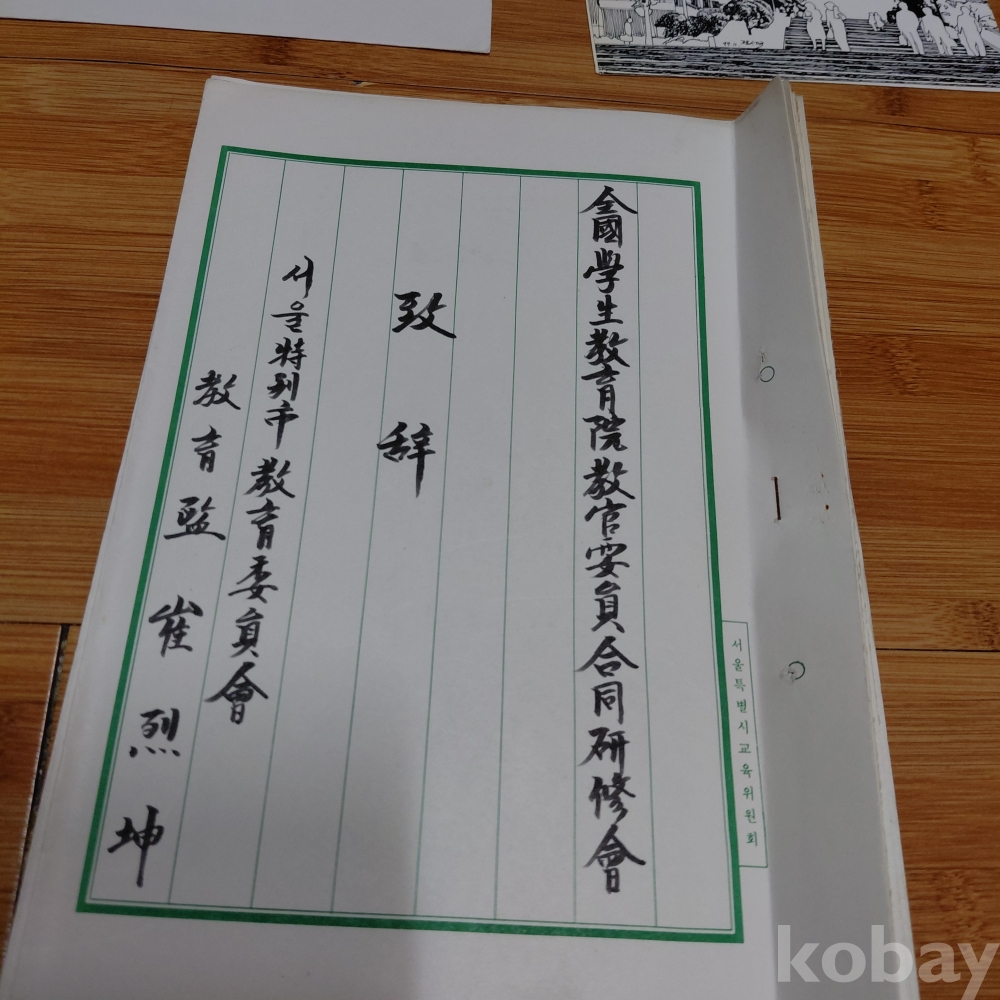 全國學生教育院教官要員合同研修會
致辞
서울特別市教育委員會
教育監 崔烈坤
서울특별시교육위원회
kobay